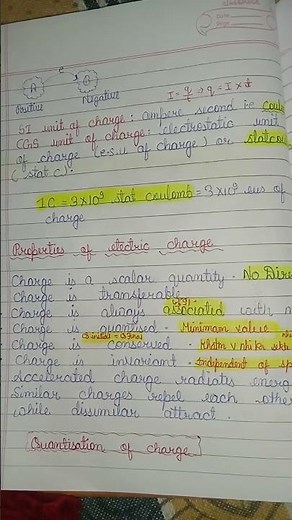 e
A
B
Positive
Negative
I = q/t ⇒ q = I × t
SI unit of charge: ampere second i.e. Coul
CGS unit of charge: electrostatic unit
of charge (e.s.u of charge) or statcou
(stat C):
1C = 3×10⁹ stat coulomb = 3×10⁹ esu of
charge
Properties of electric charge
Charge is a scalar quantity - No Dire
Charge is transferable
Charge is always associated with m
Charge is quantised - Minimum value
Charge is conserved -
Charge is invariant - Independent of sp
Accelerated charge radiates energ
Similar charges repel each othe
while dissimilar attract.
Quantisation of charge